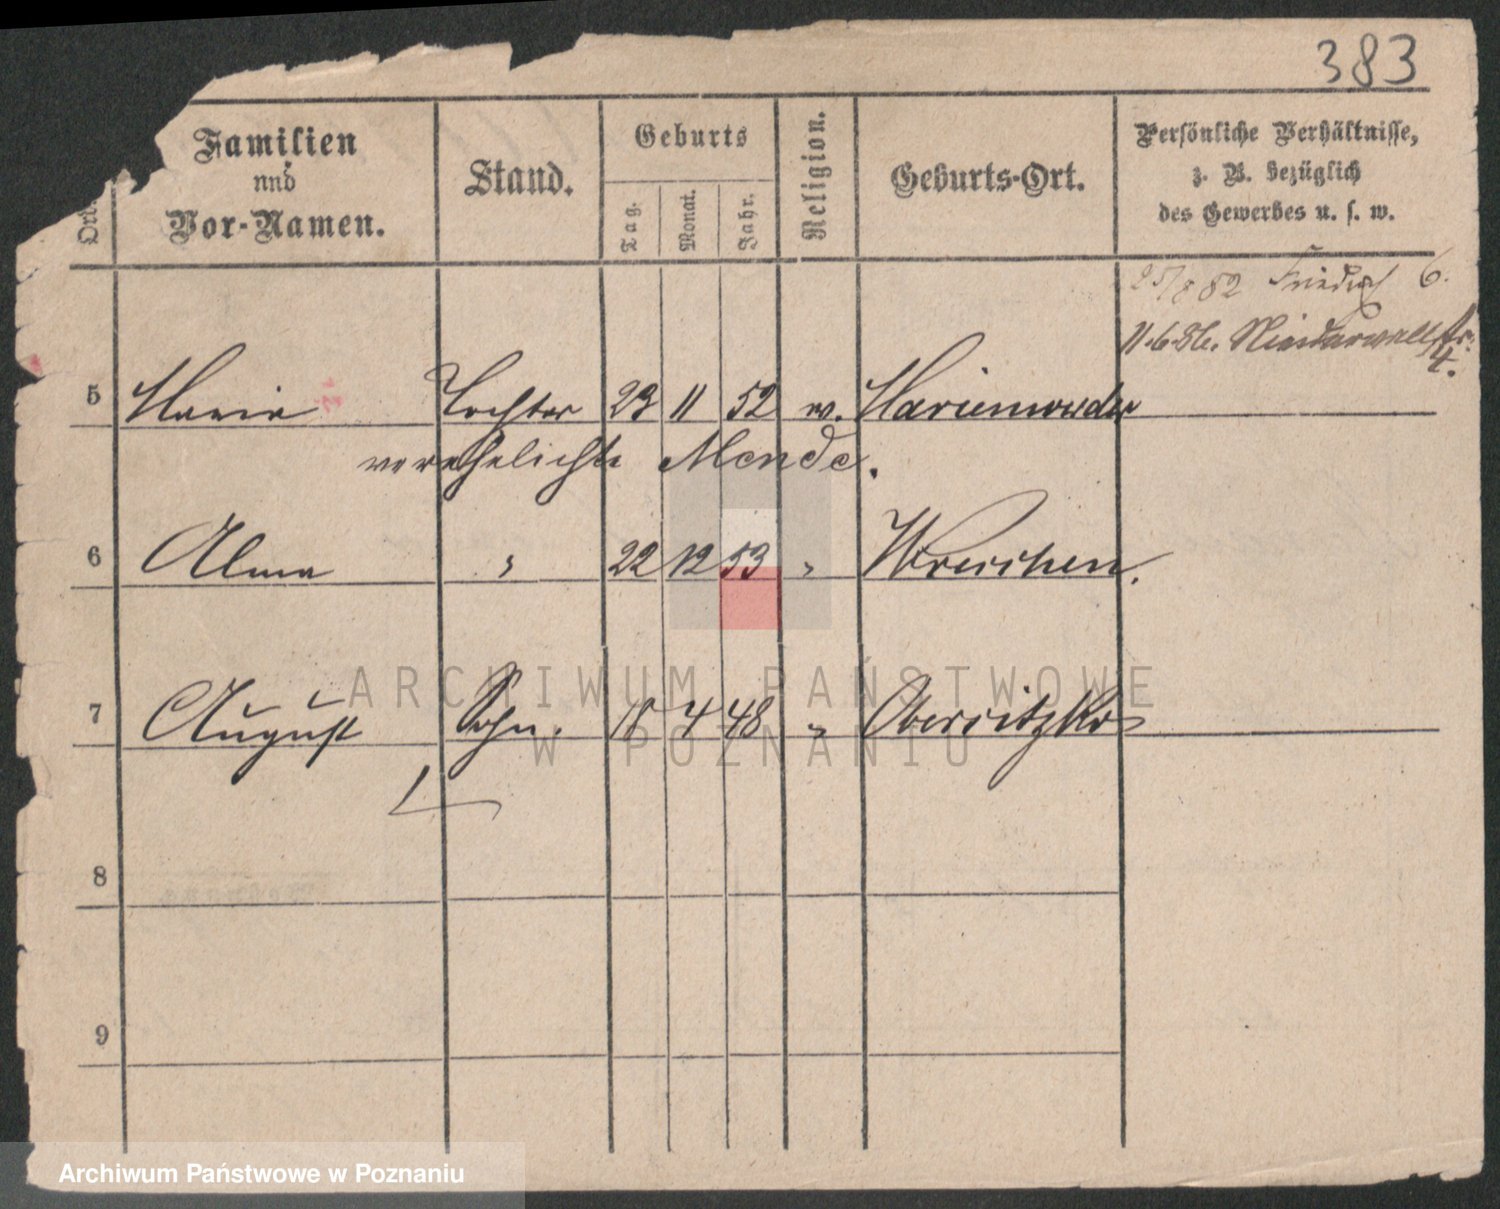 383
Familien und Vor-Namen. Stand. Geburts Religion. Geburts-Ort. Persönliche Verhältnisse, z. B. bezüglich des Gewerbes u. s. w.
Ord. Tag. Monat. Jahr.
25/8 82 Friedr. 6.
11.6.86. Niederwallstr. 4.
5 Marie Tochter 23 11 52 ev. Marienwerder
verehelichte Mende.
6 Alma " 22 12 53 " Wreschen.
7 August Sohn. 18 4 48 " Obersitzko
8
9
ARCHIWUM PAŃSTWOWE
W POZNANIU
Archiwum Państwowe w Poznaniu